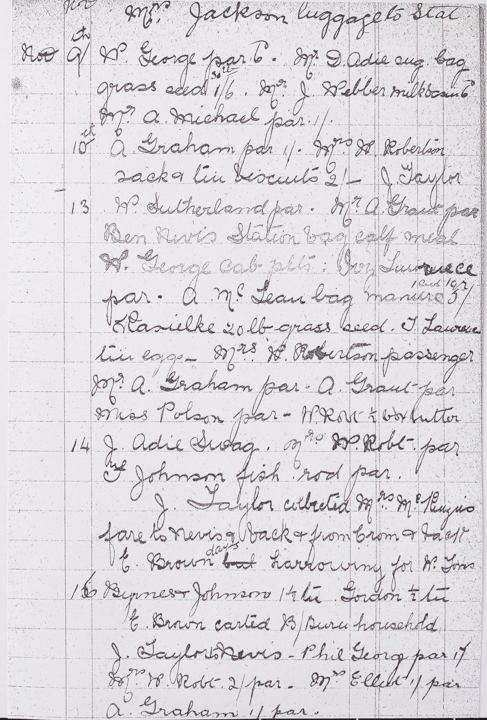 Mrs. Jackson luggage to Stat.
Nov 9th W George par 6. Mr D. Adie sug. bag
grass seed 1/6. Mr J. Webber milk basin 6
Mr A. Michael par. 1/.
10th A Graham par 1/. Mrs W. Robertson
sack & tin biscuits 2/- J. Taylor
13 W. Sutherland par. Mr A. Grant par
Ben Nevis Station bag calf meal
W. George cab plts: Ivy Lawrence
par. A. McLean bag manure
20 lb grass seed. T. Lawrence
tin eggs - Mrs W. Robertson passenger
Mr A. Graham par. A. Grant par
Miss Polson par - W Robt ½ box butter
14 J. Adie Swag. Mrs W. Robt. par
Johnson fish rod par.
J. Taylor collected Mrs
fare to Nevis & back & from Crom & back
E. Brown days harrowing for W.
15 Byrnes & Johnson 1½ tin Gordon ½ tin
E. Brown carted household
J. Taylor Nevis - Phil Georg par 1/
Mrs W. Robt. 2/ par. Mrs Elliot 1/ par
A. Graham 1/ par.